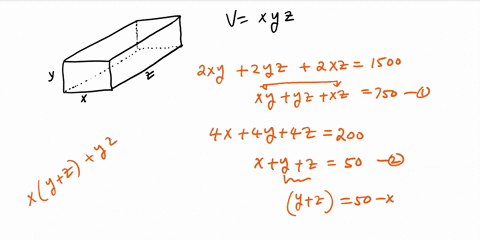 V = xyz
y
x
z
2xy + 2yz + 2xz = 1500
xy + yz + xz = 750 — ①
4x + 4y + 4z = 200
x + y + z = 50 — ②
(y+z) = 50 - x
x(y+z) + yz